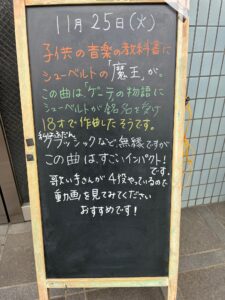 11月25日(火)
子供の音楽の教科書に
シューベルトの「魔王」が、
この曲は「ゲーテの物語に
シューベルトが銘名を受け
18才で作曲したそうです。
私はふだん、
クラッシックなど、無縁ですが
この曲は、すごいインパクト!
です。
歌い手さんが4役やっているので
動画を見てみてください
おすすめです!